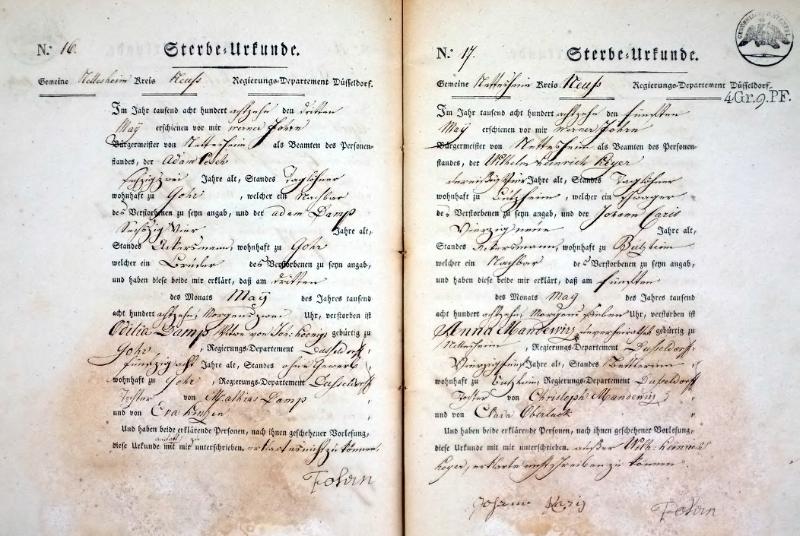 N.º 16.
Sterbe-Urkunde.
Gemeine Nettesheim Kreis Neuß Regierungs-Departement Düsseldorf.
Im Jahr tausend acht hundert achtzehn den dritten
May erschienen vor mir Werner Fohrn
Bürgermeister von Nettesheim als Beamten des Personen-
standes, der Adam
Jahre alt, Standes Taglöhner
wohnhaft zu Gohr, welcher ein Nachbar
des Verstorbenen zu seyn angab, und der adam Damp
Sechszig Vier Jahre alt,
Standes Ackersmann, wohnhaft zu Gohr
welcher ein Bruder des Verstorbenen zu seyn angab,
und haben diese beide mir erklärt, daß am dritten
des Monats May des Jahres tausend
acht hundert achtzehn Morgens zwei Uhr, verstorben ist
Cecilia Damp Wittwe von Joh: König gebürtig zu
Gohr, Regierungs-Departement Dusseldorff
fünfzig acht Jahre alt, Standes ohne Gewerb
wohnhaft zu Gohr, Regierungs-Departement Dusseldorff
Tochter von Mathias Damp
und von Eva
Und haben beide erklärende Personen, nach ihnen geschehener Vorlesung,
diese Urkunde mit mir unterschrieben. erklärtes nicht zu können
Fohrn
N.º 17.
Sterbe-Urkunde.
Gemeine Nettesheim Kreis Neuß Regierungs-Departement Düsseldorf.
4Gr.9.PF.
Im Jahr tausend acht hundert achtzehn den fünften
May erschienen vor mir Werner Fohrn
Bürgermeister von Nettesheim als Beamten des Personen-
standes, der Wilhelm Heinrich Keyer
dreißig Vier Jahre alt, Standes Taglöhner
wohnhaft zu Butzheim, welcher ein Schwager
des Verstorbenen zu seyn angab, und der Johann Caris
Vierzig neun Jahre alt,
Standes Ackersmann, wohnhaft zu Butzheim
welcher ein Nachbar des Verstorbenen zu seyn angab,
und haben diese beide mir erklärt, daß am fünften
des Monats May des Jahres tausend
acht hundert achtzehn Morgens sieben Uhr, verstorben ist
Anna Mandewirz unverheirathet gebürtig zu
Nettesheim, Regierungs-Departement Dusseldorff
Vierzig fünf Jahre alt, Standes Bettlerin
wohnhaft zu Butzheim, Regierungs-Departement Dusseldorff
Tochter von Christoph Mandewirz
und von Clara Oberlack
Und haben beide erklärende Personen, nach ihnen geschehener Vorlesung,
diese Urkunde mit mir unterschrieben. außer Wilh: Heinrich
Keyer, erklärte nicht schreiben zu können
Johann Karis Fohrn